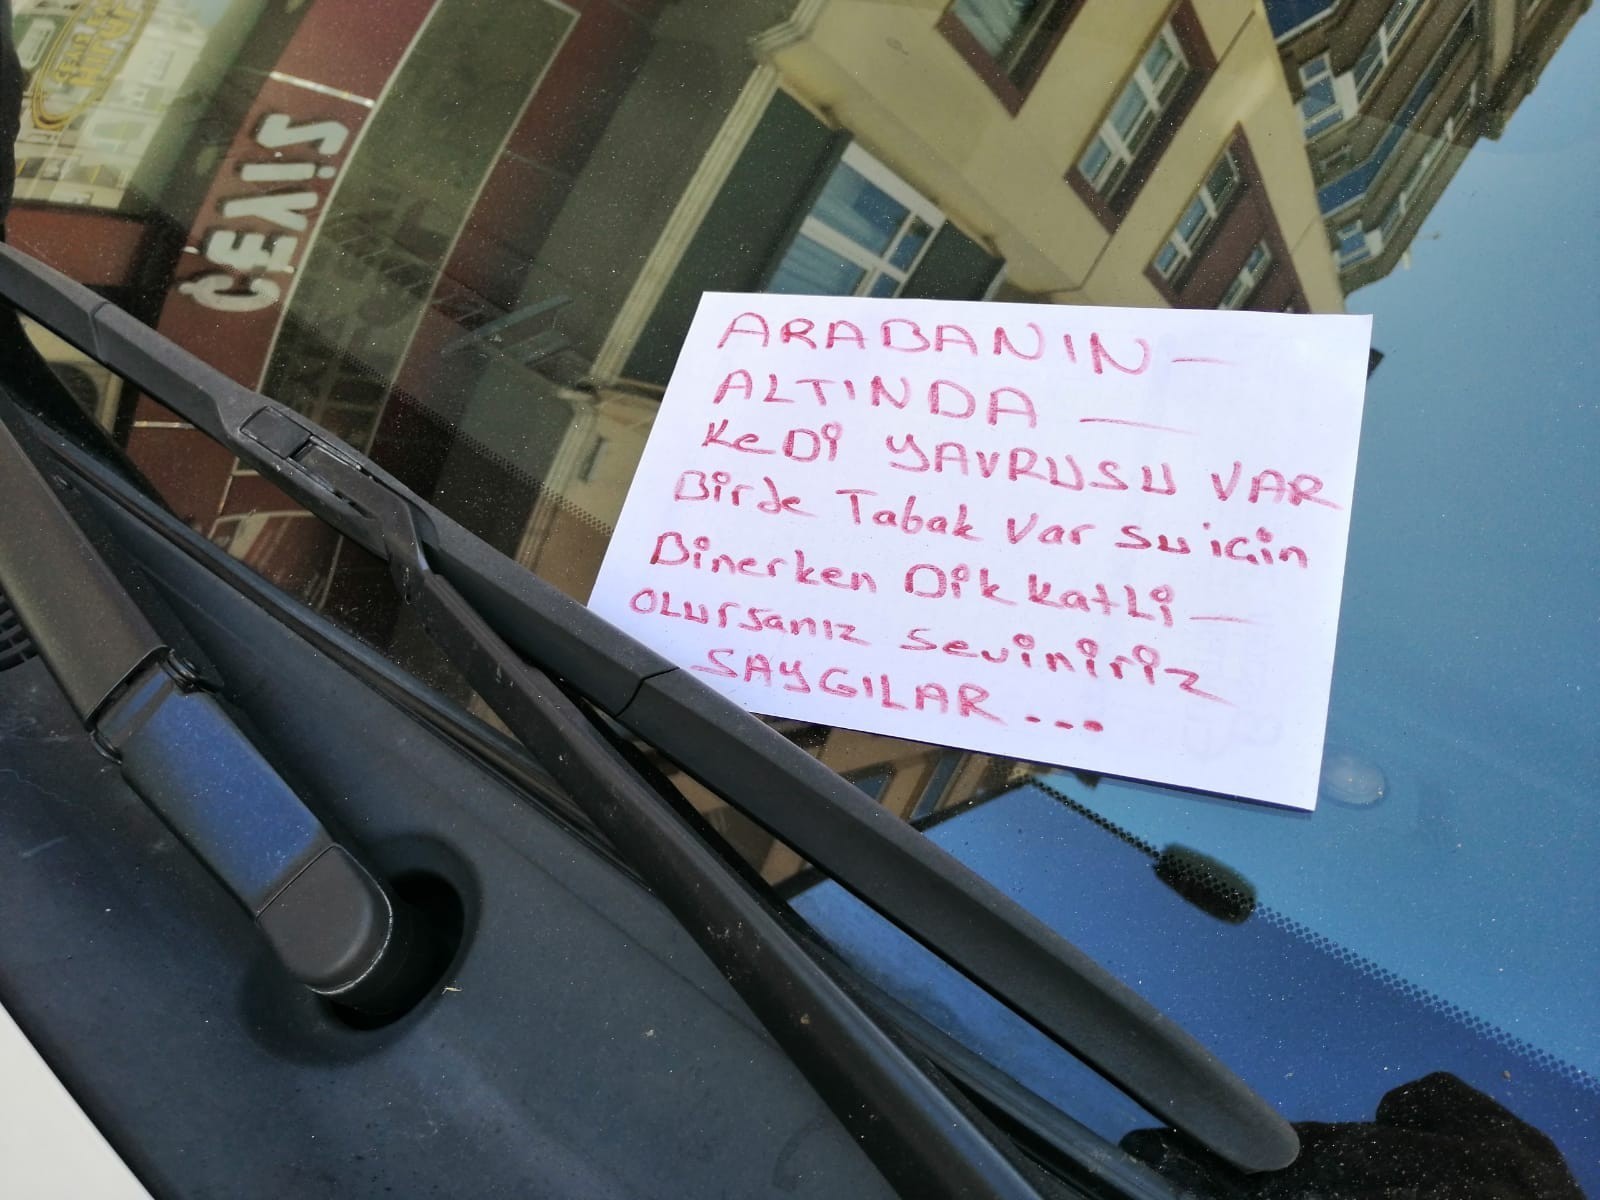 ÇEViZ
ARABANIN —
ALTINDA —
KeDi YAVRUSU VAR
Birde Tabak Var su için
Binerken Dikkatli —
OLursanız seviniriz
SAYGILAR...